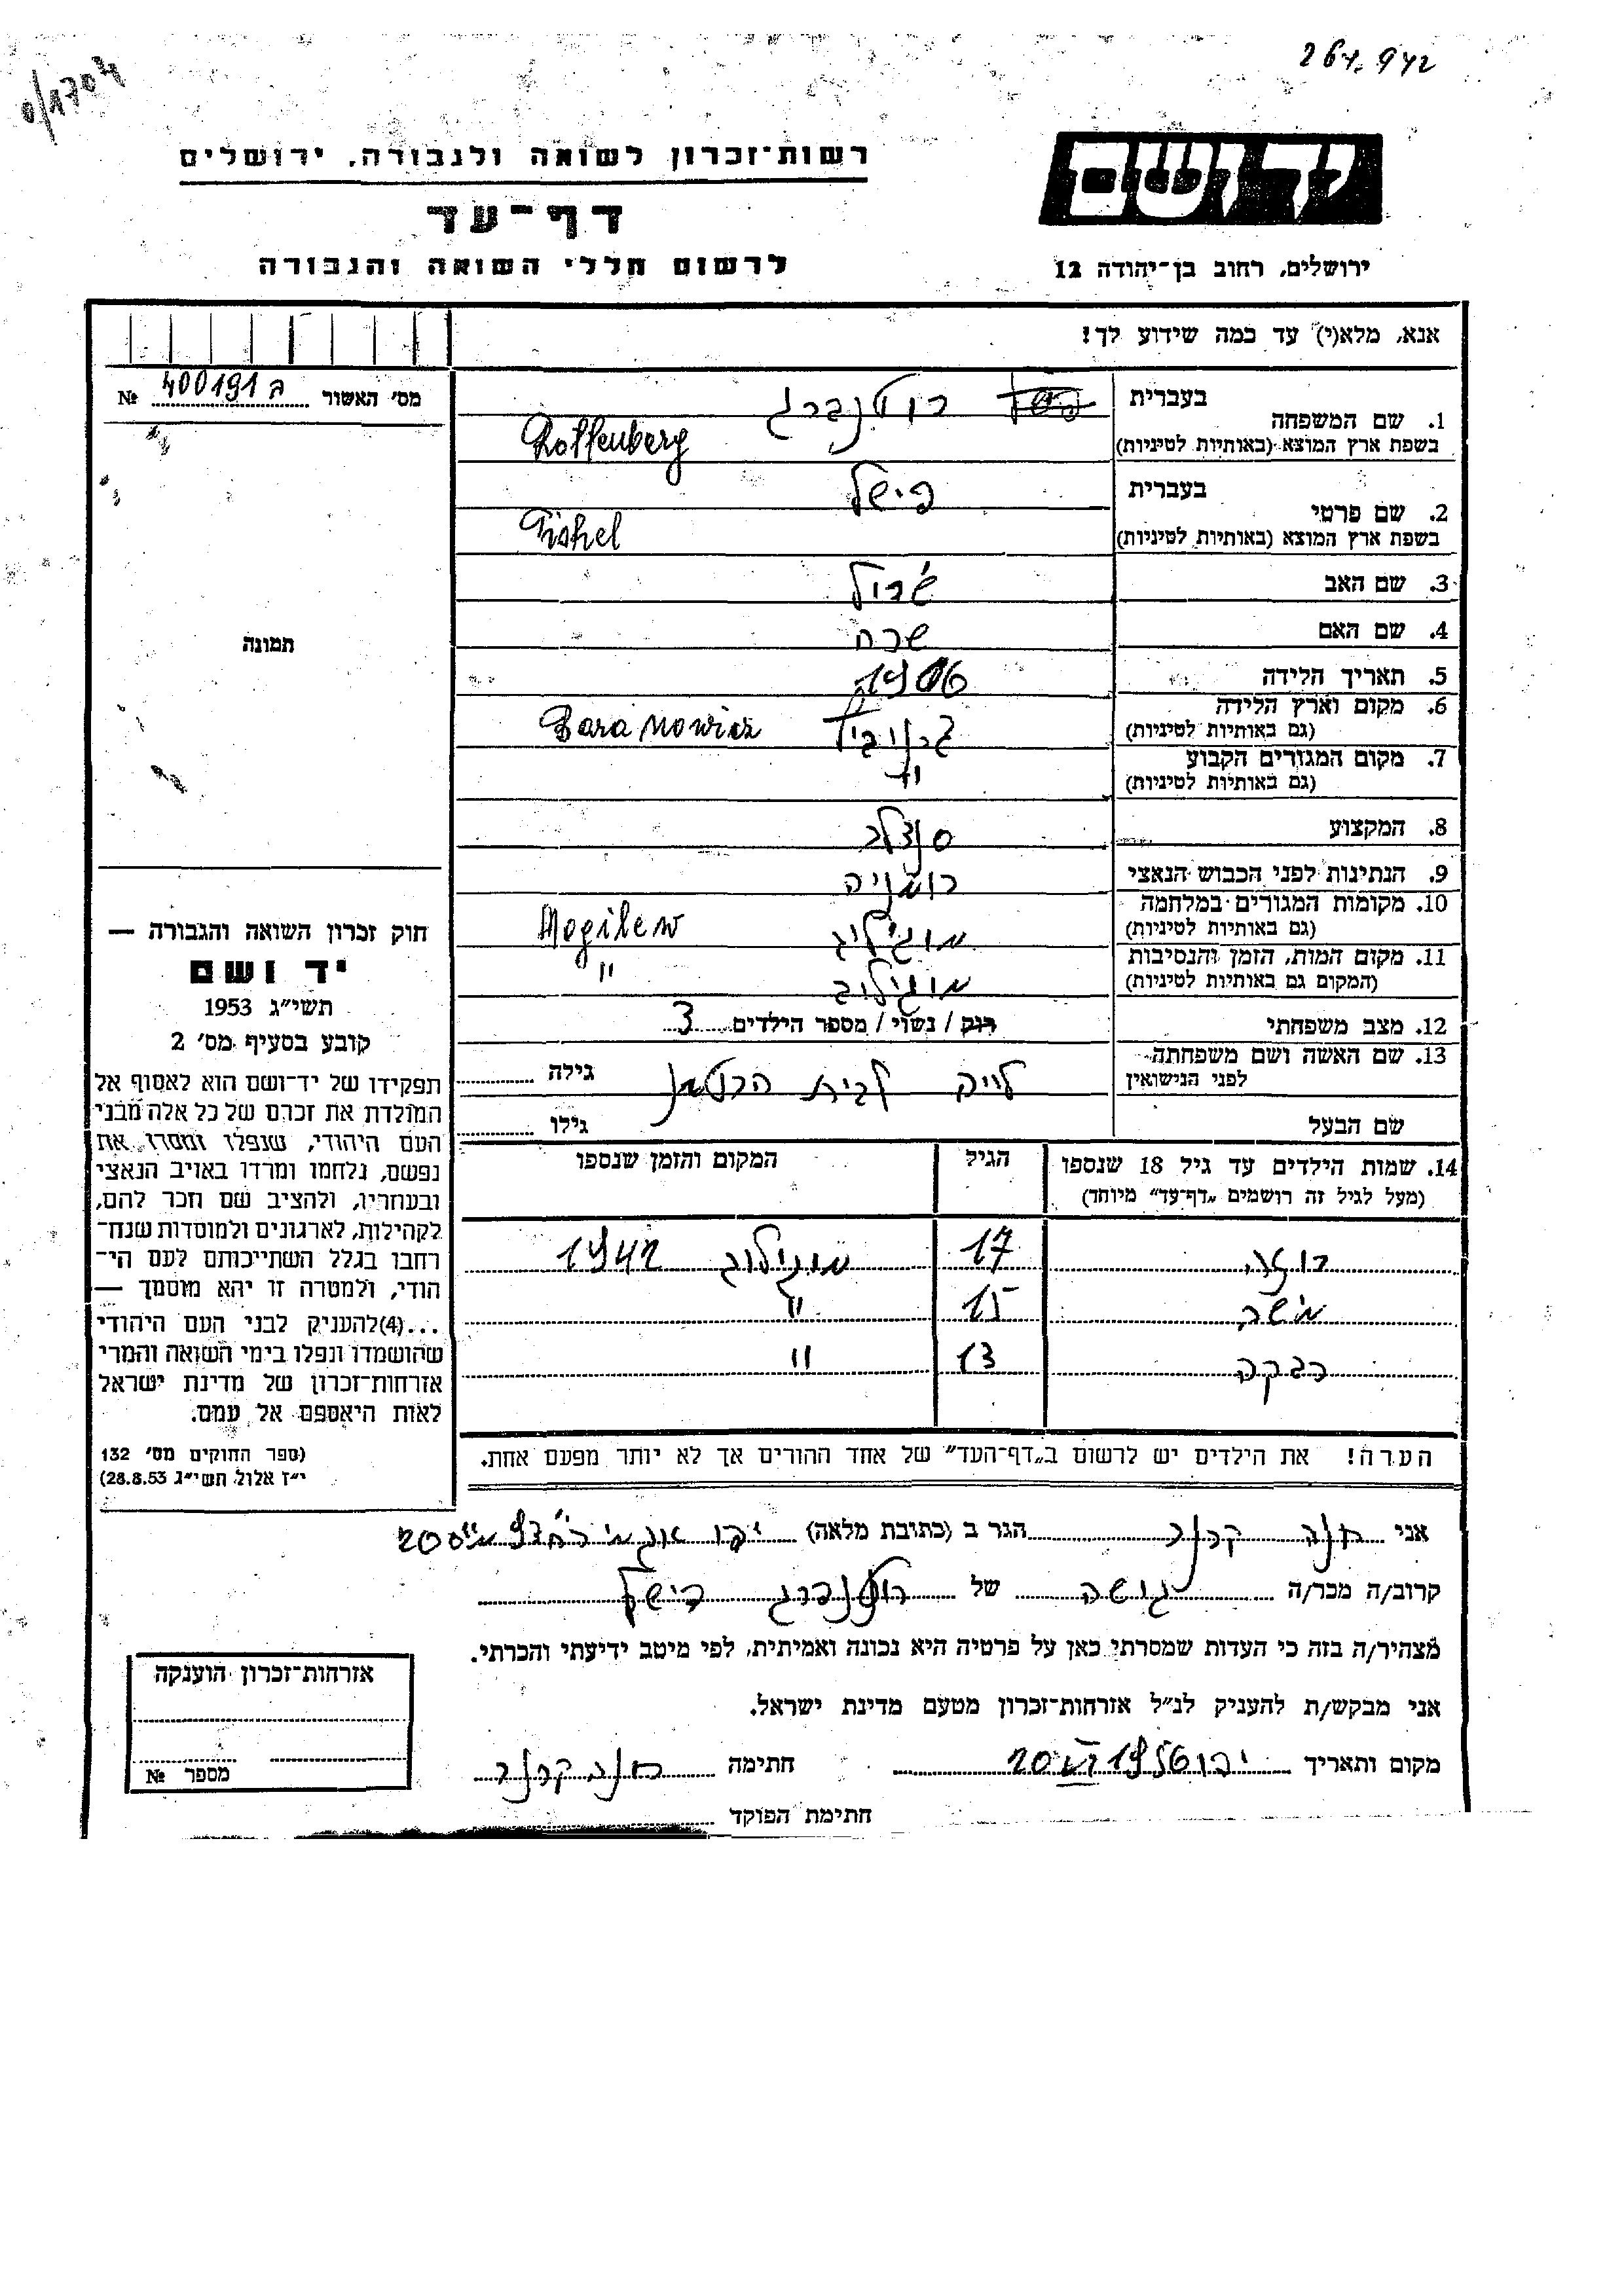 264.942
0/1704
רשות־זכרון לשואה ולגבורה, ירושלים
דף־עד
לרשום חללי השואה והגבורה
יד ושם
ירושלים, רחוב בן־יהודה 12
אנא, מלא(י) עד כמה שידוע לך!
מס׳ האשור 400191 ג №
תמונה
חוק זכרון השואה והגבורה —
יד ושם
תשי״ג 1953
קובע בסעיף מס׳ 2
תפקידו של יד־ושם הוא לאסוף אל
המולדת את זכרם של כל אלה מבני
העם היהודי, שנפלו ומסרו את
נפשם, נלחמו ומרדו באויב הנאצי
ובעוזריו, ולהציב שם וזכר להם,
לקהילות, לארגונים ולמוסדות שנח־
רבו בגלל השתייכותם לעם הי־
הודי, ולמטרה זו יהא מוסמך —
...(4) להעניק לבני העם היהודי
שהושמדו ונפלו בימי השואה והמרי
אזרחות־זכרון של מדינת ישראל
לאות היאספם אל עמם.
(ספר החוקים מס׳ 132
י״ז אלול תשי״ג 28.8.53)
1. שם המשפחה בעברית רוטנברג
בשפת ארץ המוצא (באותיות לטיניות) Rottenberg
2. שם פרטי בעברית פישל
בשפת ארץ המוצא (באותיות לטיניות) Fishel
3. שם האב שרול
4. שם האם שרה
5. תאריך הלידה 1906
6. מקום וארץ הלידה
(גם באותיות לטיניות) Baranowicz
7. מקום המגורים הקבוע "
(גם באותיות לטיניות)
8. המקצוע סנדלר
9. הנתינות לפני הכבוש הנאצי רומניה
10. מקומות המגורים במלחמה מוגילוב Mogilew
(גם באותיות לטיניות)
11. מקום המות, הזמן והנסיבות מוגילוב "
(המקום גם באותיות לטיניות)
12. מצב משפחתי רוק / נשוי / מספר הילדים 3
13. שם האשה ושם משפחתה לבית הרטמן גילה
לפני הנישואין
שם הבעל גילו
14. שמות הילדים עד גיל 18 שנספו הגיל המקום והזמן שנספו
(מעל לגיל זה רושמים „דף־עד״ מיוחד)
רוזה 17 מוגילוב 1942
משה 15 "
רבקה 13 "
הערה! את הילדים יש לרשום ב„דף־העד״ של אחד ההורים אך לא יותר מפעם אחת.
אני חנה קרנר הגר ב (כתובת מלאה)
קרוב/ה מכר/ה של רוטנברג פישל
מצהיר/ה בזה כי העדות שמסרתי כאן על פרטיה היא נכונה ואמיתית, לפי מיטב ידיעתי והכרתי.
אני מבקש/ת להעניק לנ״ל אזרחות־זכרון מטעם מדינת ישראל.
מקום ותאריך 20 VI 1956 חתימה חנה קרנר
חתימת הפוקד
אזרחות־זכרון הוענקה
מספר №